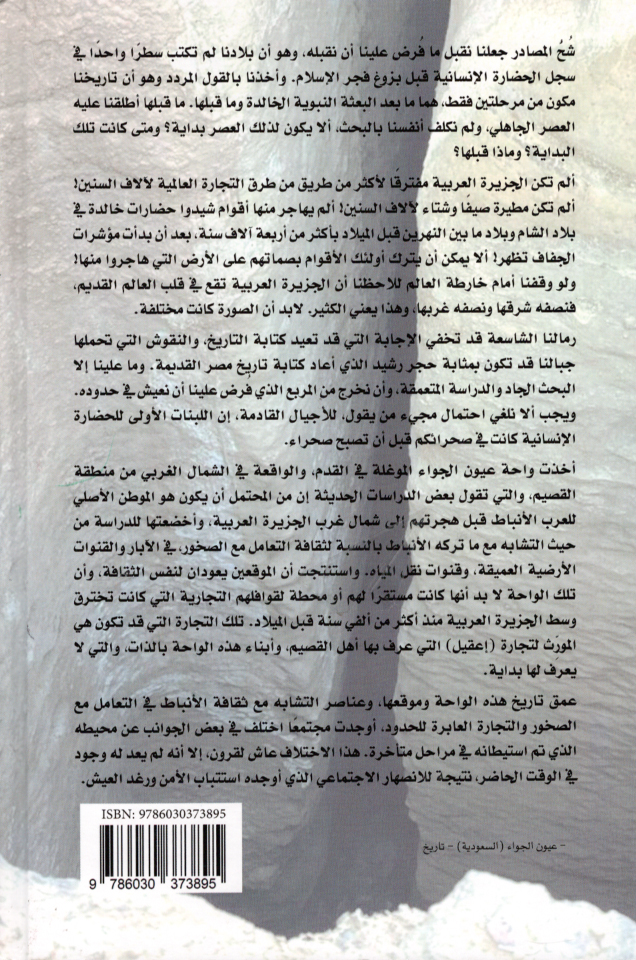 شُحُّ المصادر جعلنا نقبل ما فُرض علينا أن نقبله، وهو أن بلادنا لم تكتب سطرًا واحدًا في
سجل الحضارة الإنسانية قبل بزوغ فجر الإسلام. وأخذنا بالقول المردد وهو أن تاريخنا
مكون من مرحلتين فقط، هما ما بعد البعثة النبوية الخالدة وما قبلها. ما قبلها أطلقنا عليه
العصر الجاهلي، ولم نكلف أنفسنا بالبحث، ألا يكون لذلك العصر بداية؟ ومتى كانت تلك
البداية؟ وماذا قبلها؟
ألم تكن الجزيرة العربية مفترقًا لأكثر من طريق من طرق التجارة العالمية لآلاف السنين!
ألم تكن مطيرة صيفًا وشتاء لآلاف السنين! ألم يهاجر منها أقوام شيدوا حضارات خالدة في
بلاد الشام وبلاد ما بين النهرين قبل الميلاد بأكثر من أربعة آلاف سنة، بعد أن بدأت مؤشرات
الجفاف تظهر! ألا يمكن أن يترك أولئك الأقوام بصماتهم على الأرض التي هاجروا منها!
ولو وقفنا أمام خارطة العالم للاحظنا أن الجزيرة العربية تقع في قلب العالم القديم،
فنصفه شرقها ونصفه غربها، وهذا يعني الكثير. لابد أن الصورة كانت مختلفة.
رمالنا الشاسعة قد تخفي الإجابة التي قد تعيد كتابة التاريخ، والنقوش التي تحملها
جبالنا قد تكون بمثابة حجر رشيد الذي أعاد كتابة تاريخ مصر القديمة. وما علينا إلا
البحث الجاد والدراسة المتعمقة، وأن نخرج من المربع الذي فرض علينا أن نعيش في حدوده.
ويجب ألا نلغي احتمال مجيء من يقول، للأجيال القادمة، إن اللبنات الأولى للحضارة
الإنسانية كانت في صحرائكم قبل أن تصبح صحراء.
أخذت واحة عيون الجواء الموغلة في القدم، والواقعة في الشمال الغربي من منطقة
القصيم، والتي تقول بعض الدراسات الحديثة إن من المحتمل أن يكون هو الموطن الأصلي
للعرب الأنباط قبل هجرتهم إلى شمال غرب الجزيرة العربية، وأخضعتها للدراسة من
حيث التشابه مع ما تركه الأنباط بالنسبة لثقافة التعامل مع الصخور، في الآبار والقنوات
الأرضية العميقة، وقنوات نقل المياه. واستنتجت أن الموقعين يعودان لنفس الثقافة، وأن
تلك الواحة لا بد أنها كانت مستقرًا لهم أو محطة لقوافلهم التجارية التي كانت تخترق
وسط الجزيرة العربية منذ أكثر من ألفي سنة قبل الميلاد. تلك التجارة التي قد تكون هي
المورّث لتجارة (إعقيل) التي عرف بها أهل القصيم، وأبناء هذه الواحة بالذات، والتي لا
يعرف لها بداية.
عمق تاريخ هذه الواحة وموقعها، وعناصر التشابه مع ثقافة الأنباط في التعامل مع
الصخور والتجارة العابرة للحدود، أوجدت مجتمعًا اختلف في بعض الجوانب عن محيطه
الذي تم استيطانه في مراحل متأخرة. هذا الاختلاف عاش لقرون، إلا أنه لم يعد له وجود
في الوقت الحاضر، نتيجة للانصهار الاجتماعي الذي أوجده استتباب الأمن ورغد العيش.
ISBN: 9786030373895
9 786030 373895
- عيون الجواء (السعودية) - تاريخ